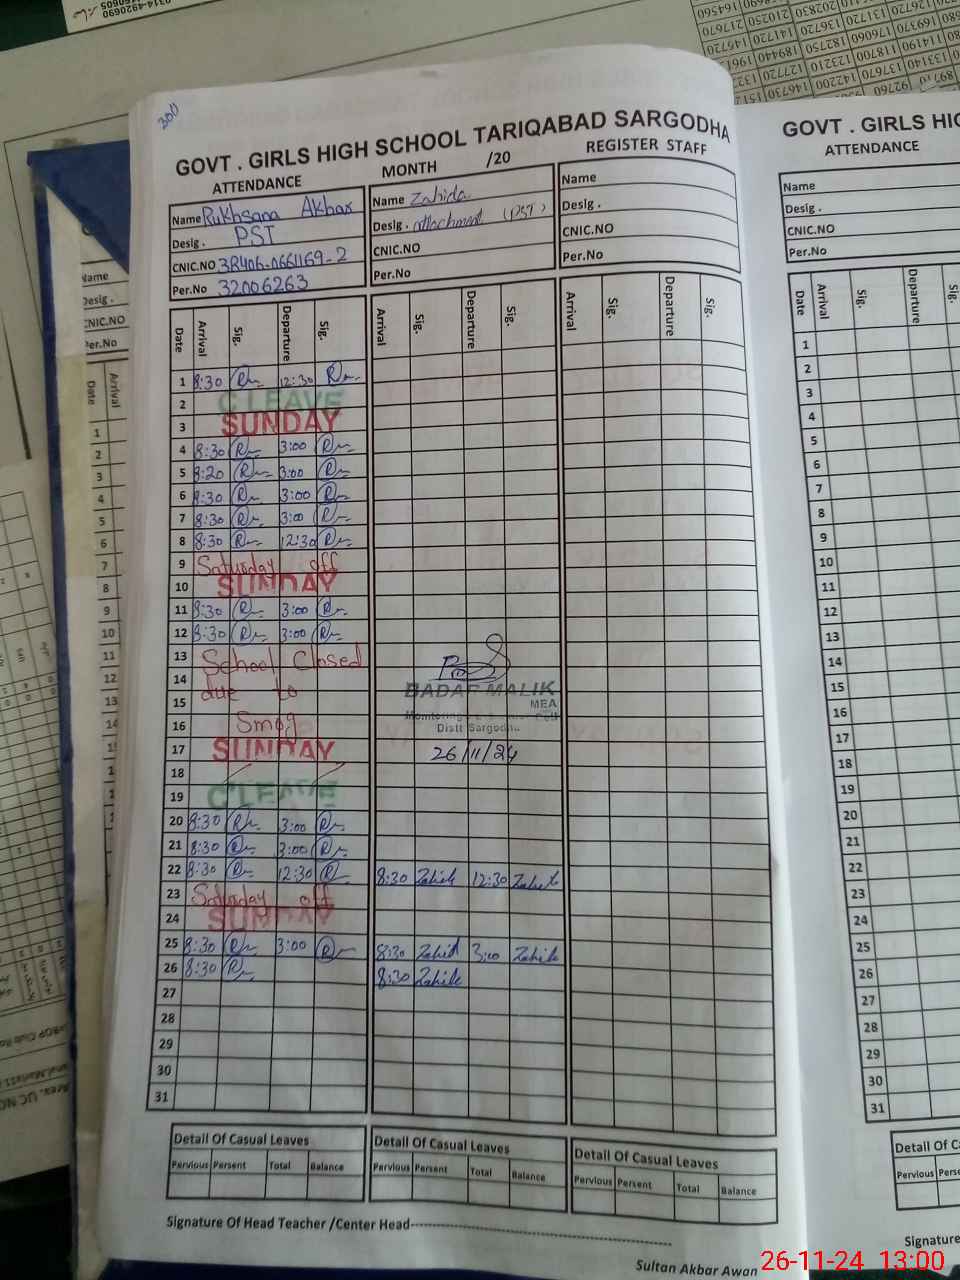 300
GOVT . GIRLS HIGH SCHOOL TARIQABAD SARGODHA
ATTENDANCE MONTH /20 REGISTER STAFF
Name Rukhsana Akbar
Desig . PST
CNIC.NO 38406-0661169-2
Per.No 32006263
Name Zahida
Desig . attachment (PST)
CNIC.NO
Per.No
Name
Desig .
CNIC.NO
Per.No
Date Arrival Sig. Departure Sig. Arrival Sig. Departure Sig. Arrival Sig. Departure Sig.
1 8:30 12:30
2 C LEAVE
3 SUNDAY
4 8:30 3:00
5 8:20 3:00
6 8:30 3:00
7 8:30 3:00
8 8:30 12:30
9 Saturday off
10 SUNDAY
11 8:30 3:00
12 8:30 3:00
13 School Closed
14 due to
15
16 Smog
17 SUNDAY
18
19 C LEAVE
20 8:30 3:00
21 8:30 3:00
22 8:30 12:30 8:30 Zahida 12:30 Zahida
23 Saturday off
24 SUNDAY
25 8:30 3:00 8:30 Zahida 3:00 Zahida
26 8:30 8:30 Zahida
27
28
29
30
31
BADAR MALIK
MEA
Distt Sargodha
26/11/24
Detail Of Casual Leaves Detail Of Casual Leaves Detail Of Casual Leaves
Pervious Persent Total Balance Pervious Persent Total Balance Pervious Persent Total Balance
Signature Of Head Teacher /Center Head
Sultan Akbar Awan
GOVT . GIRLS HIG
ATTENDANCE
Name
Desig .
CNIC.NO
Per.No
Date Arrival Sig. Departure Sig.
1
2
3
4
5
6
7
8
9
10
11
12
13
14
15
16
17
18
19
20
21
22
23
24
25
26
27
28
29
30
31
Detail Of C
Pervious Perse
Signature
Name
Desig .
CNIC.NO
Per.No
Date Arrival
1
2
3
4
5
6
7
8
9
10
11
12
13
26-11-24 13:00